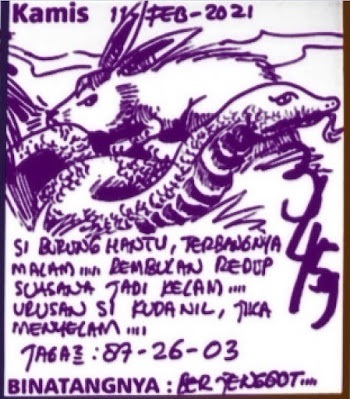 Kamis 11/FEB-2021
SI BURUNG HANTU, TERBANGNYA
MALAM .... REMBULAN REDUP
SUASANA JADI KELAM ....
URUSAN SI KUDA NIL, JIKA
MENYELAM ....
: 87-26-03
BINATANGNYA : BERJENGGOT....